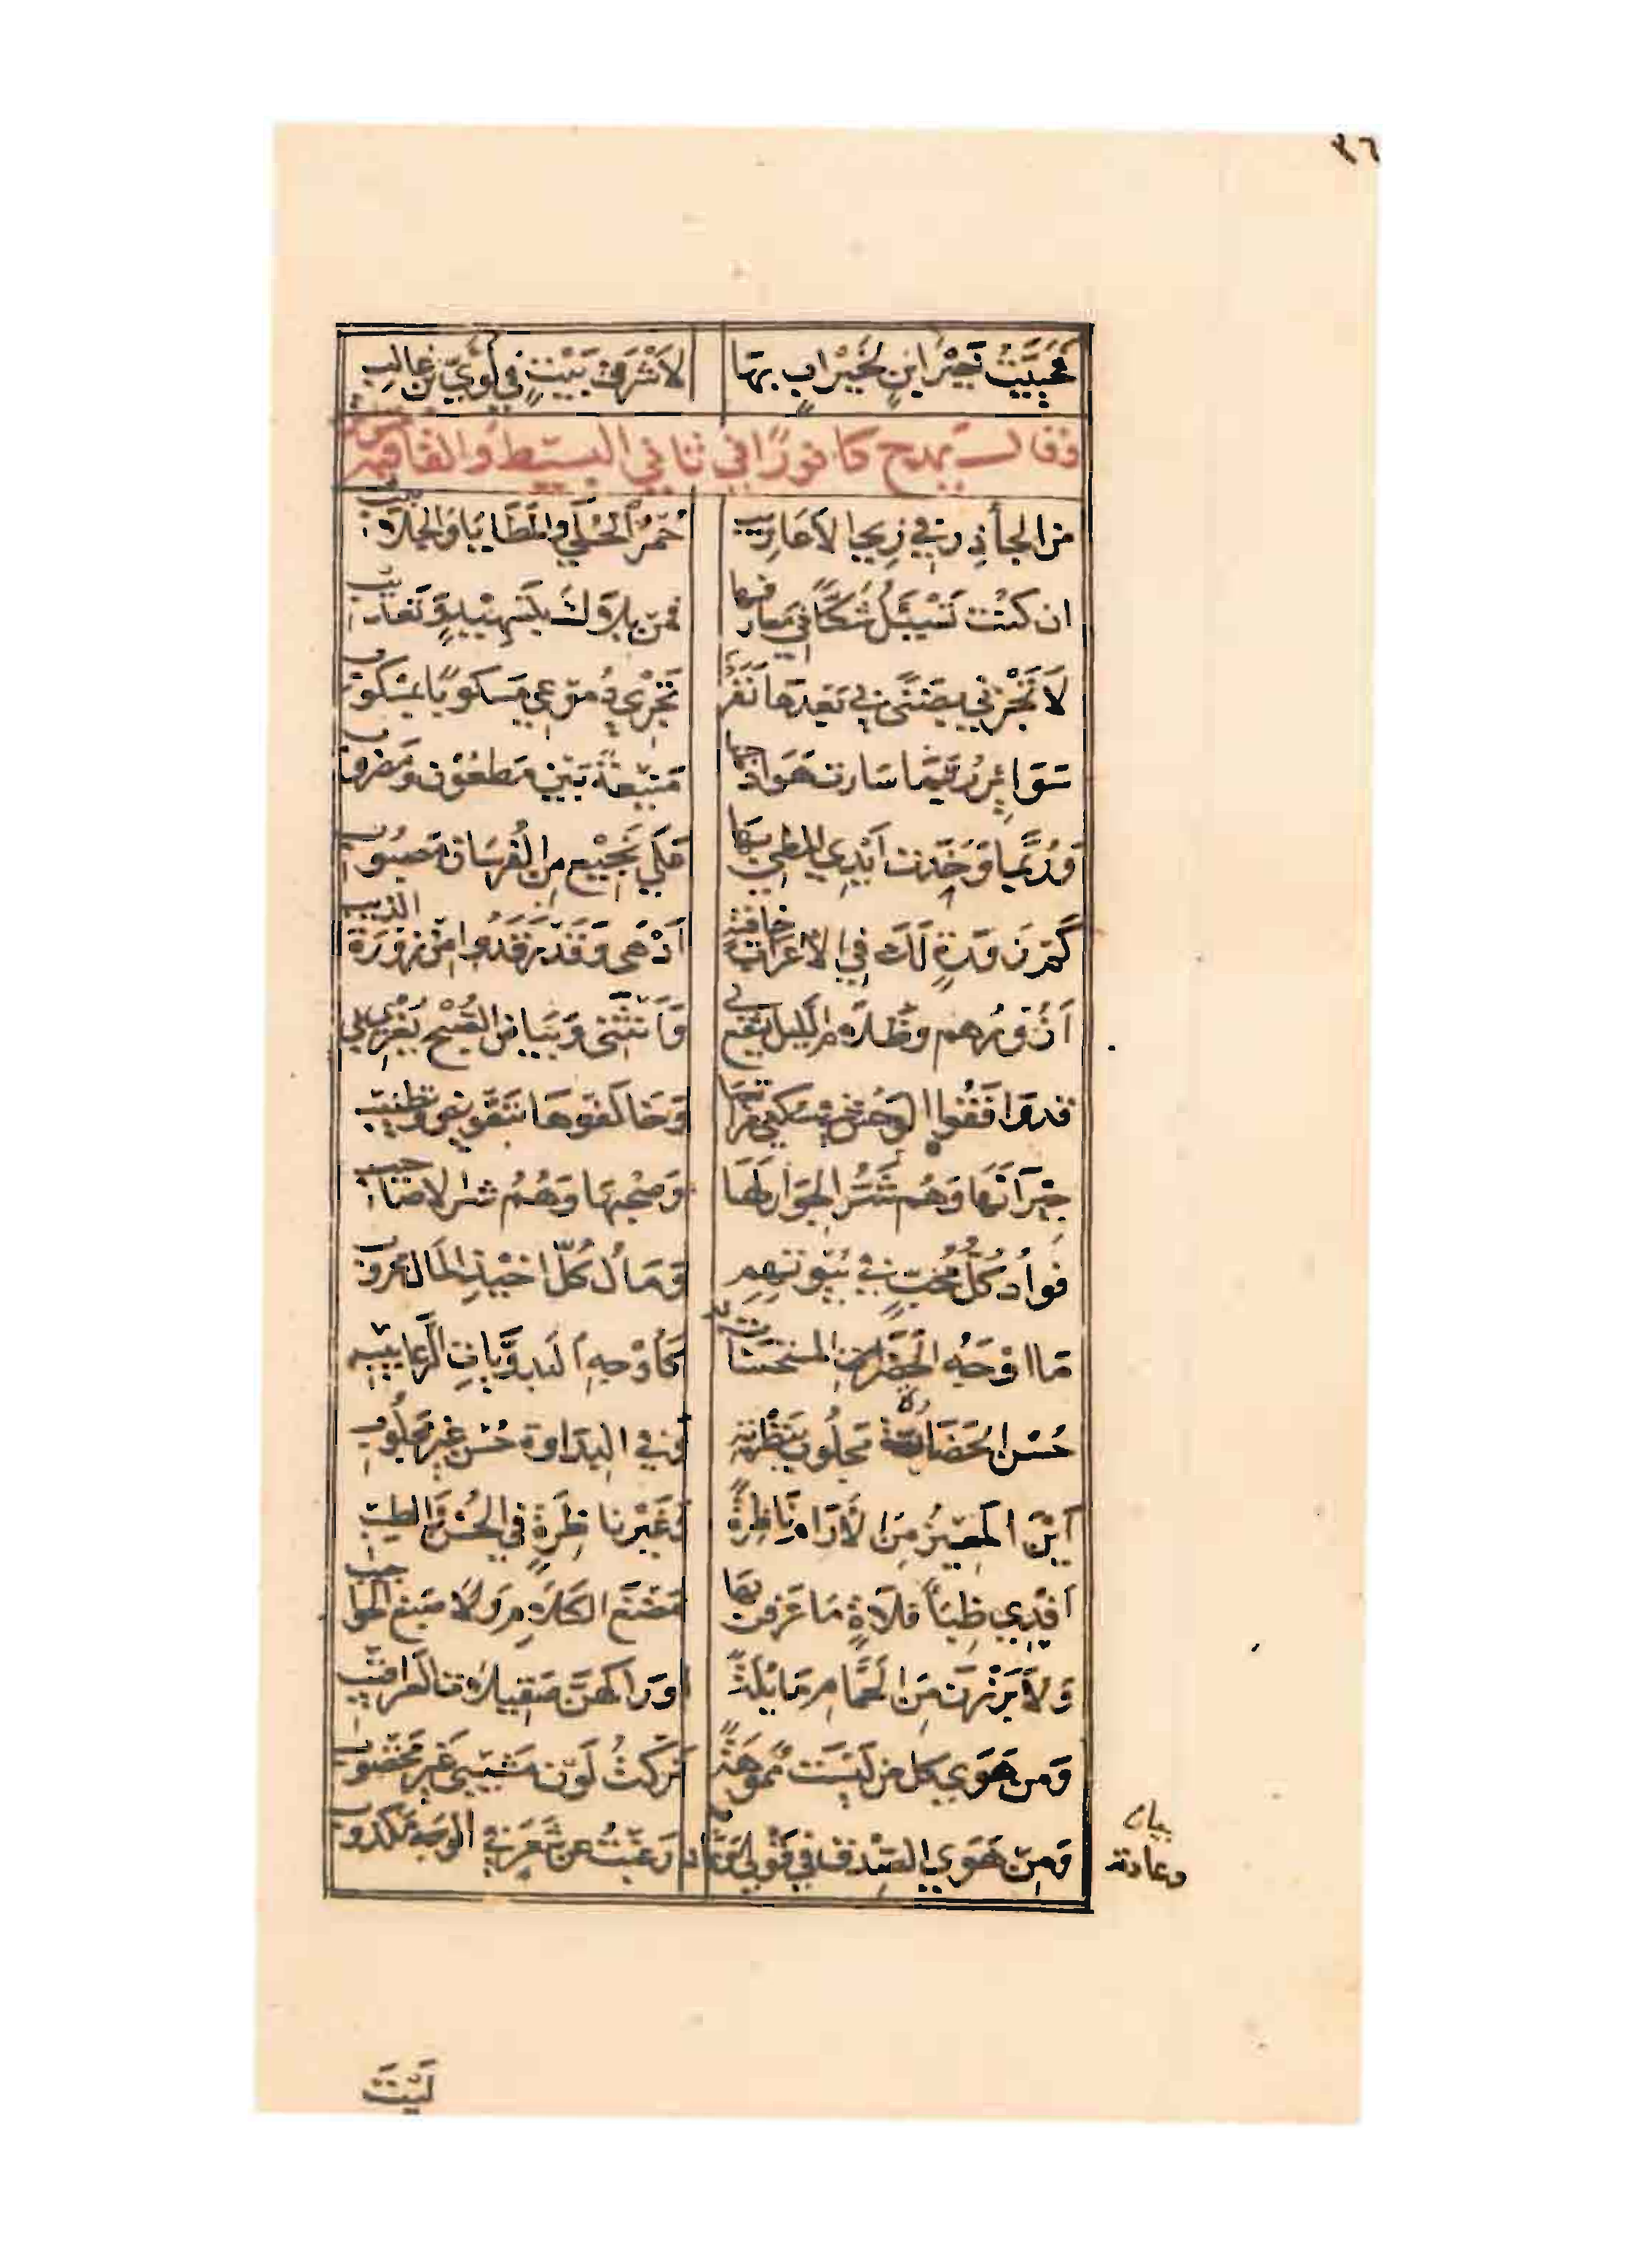 ٣٦
فحييت خير ابن لخير اب بها لأشرف بيت في لؤي بن غالب
وقال يمدح كافورًا في ثاني البسيط والقافية
من الجأذر في زي الأعاريب حمر الحلى والمطايا والجلابيب
ان كنت تسئل شكًا في معارفها فمن بلاك بتسهيد وتعذيب
لا تجزني بضنى بي بعدها بقر تجزي دموعي مسكوبًا بمسكوب
سوائر ربما سارت هوادجها منيعة بين مطعون ومضروب
وربما وخدت أيدي المطي بها على نجيع من الفرسان مصبوب
كم زورة لك في الأعراب خافية أدهى وقد رقدوا من زورة الذيب
أزورهم وظلام الليل يشفع لي وأنثني وبياض الصبح يغري بي
قد وافقوا الوحش في سكنى مراتعها وخالفوها بتقويض وتطنيب
جيرانها وهم شر الجوار لها وصحبها وهم شر الأصاحيب
فوأد كل محب في بيوتهم ومال كل اخيذ المال محروب
ما اوجه الحضر المستحسنات به كأوجه البدويات الرعابيب
حسن الحضارة مجلوب بتطرية وفي البداوة حسن غير مجلوب
أين المعيز من الآرام ناظرة وغير ناظرة في الحسن والطيب
افدي ظبأ فلاة ما عرفن بها مضغ الكلام ولا صبغ الحواجيب
ولا برزن من الحمام مايلة اوراكهن صقيلات العراقيب
ومن هوى كل من ليست مموهة تركت لون مشيبي غير مخضوب
ومن هوى الصدق في قولي وعادته رغبت عن شعر في الوجه مكذوب
بيان
وعادته
ليت